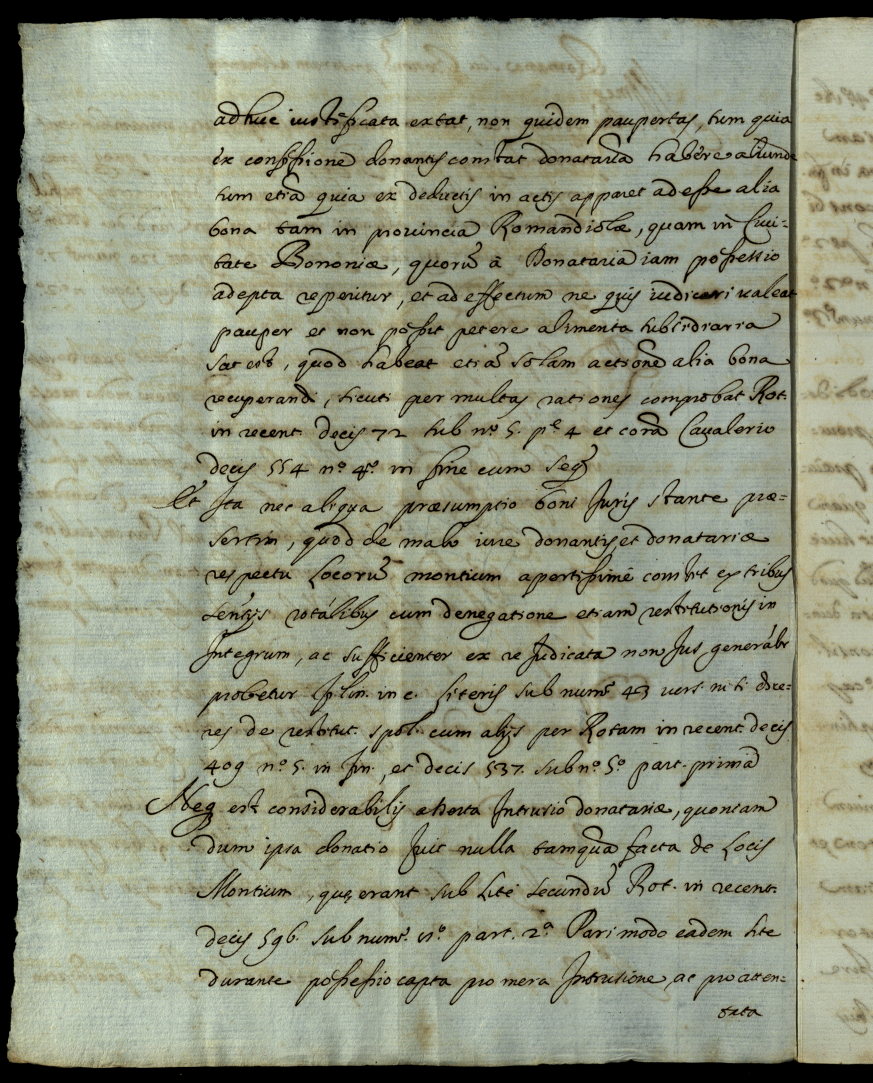 adhuc iustificata extat, non quidem paupertas, tum quia
ex confessione donantis constat donataria habere aliunde
tum etiã quia ex deductis in actis apparet adesse alia
bona tam in provincia Romandiolæ, quam in Civi=
tate Bononiæ, quorũ à Donataria iam possessio
adepta reperitur, et ad effectum ne quis iudicari valeat
pauper et non possit petere alimenta subsidiaria
sat est, quod habeat etiã solam actionẽ alia bona
recuperandi, sicuti per multas rationes comprobat Rot.
in recent. decis 72 sub nº 5. pᵉ 4 et corã Cavalerio
decis 554 nº 4º in fine cum seqq̃
Et Ita nec aliqua præsumptio boni Juris stante præ=
sertim, quod de malo iure donantis, et donatariæ
respectu Locorũ montium apertissimè constat ex tribus
sententijs rotalibus cum denegatione etiam restitutionis in
Integrum, ac sufficienter ex re Judicata non Jus generalr
probetur Felin. in c. literis sub num. 43 vers. niti dice=
res de restitut. spol. cum alijs per Rotam in recent. decis
409 nº 5. in fin., et decis 537. sub nº 5º part. prima
Neq est considerabilis asserta Intrusio donatariæ, quoniam
dum ipsa donatio fuit nulla tamquã facta de Locis
Montium, quę erant sub Lite secundũ Rot. in recent.
decis 596. sub num. part. 2ª Pari modo eadem lite
durante possessio capta pro mera Intrusione, ac pro atten=
tata